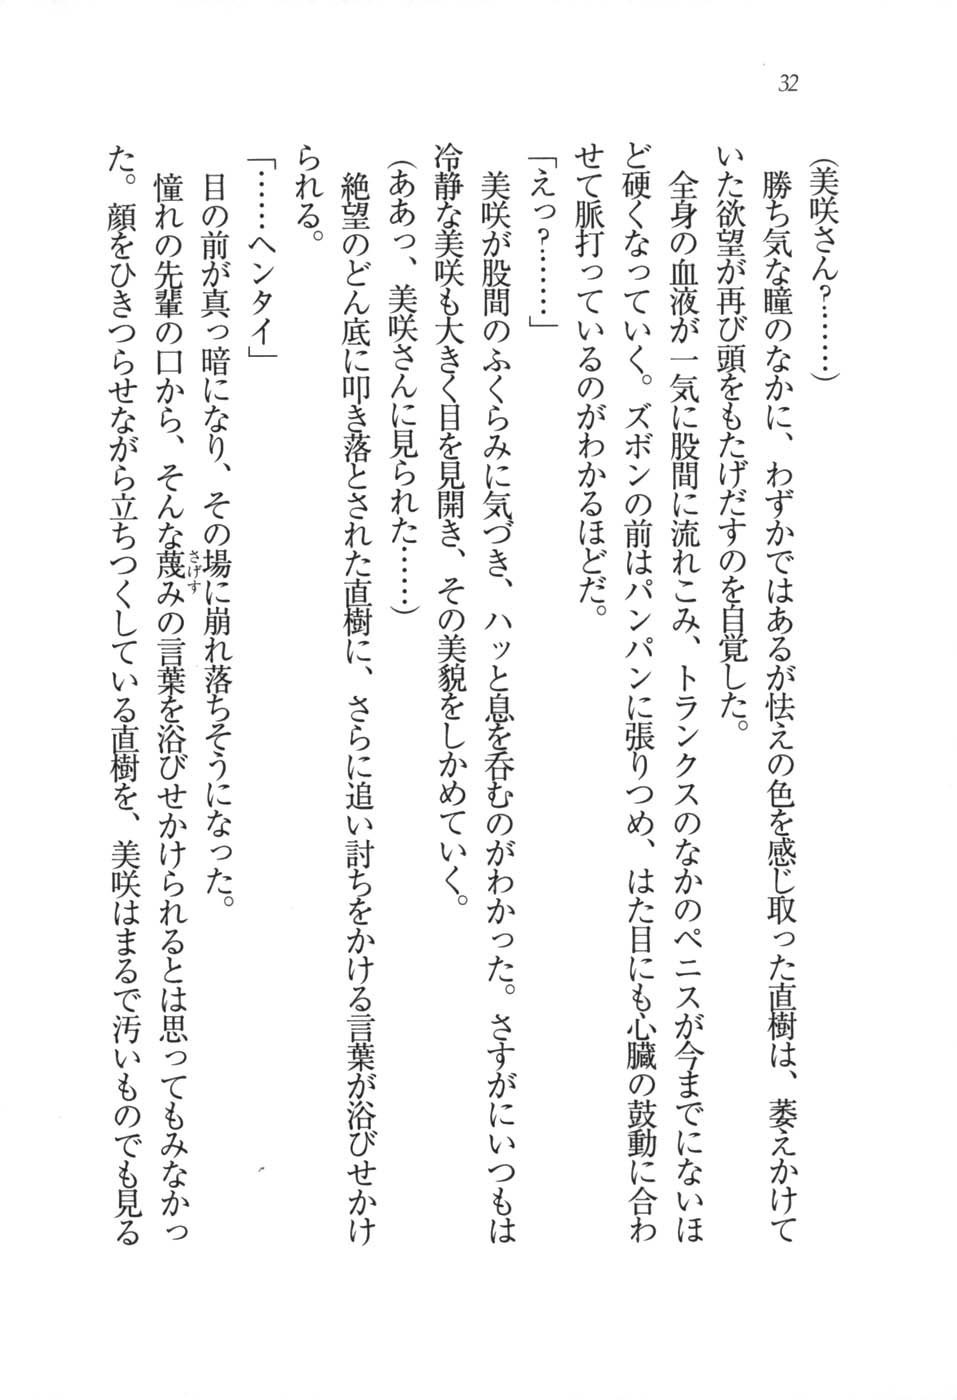 32
(美咲さん？………)
勝ち気な瞳のなかに、わずかではあるが怯えの色を感じ取った直樹は、萎えかけて
いた欲望が再び頭をもたげだすのを自覚した。
全身の血液が一気に股間に流れこみ、トランクスのなかのペニスが今までにないほ
ど硬くなっていく。ズボンの前はパンパンに張りつめ、はた目にも心臓の鼓動に合わ
せて脈打っているのがわかるほどだ。
「えっ？………」
美咲が股間のふくらみに気づき、ハッと息を呑むのがわかった。さすがにいつもは
冷静な美咲も大きく目を見開き、その美貌をしかめていく。
(ああっ、美咲さんに見られた……)
絶望のどん底に叩き落とされた直樹に、さらに追い討ちをかける言葉が浴びせかけ
られる。
「……ヘンタイ」
目の前が真っ暗になり、その場に崩れ落ちそうになった。
憧れの先輩の口から、そんな蔑さげすみの言葉を浴びせかけられるとは思ってもみなかっ
た。顔をひきつらせながら立ちつくしている直樹を、美咲はまるで汚いものでも見る